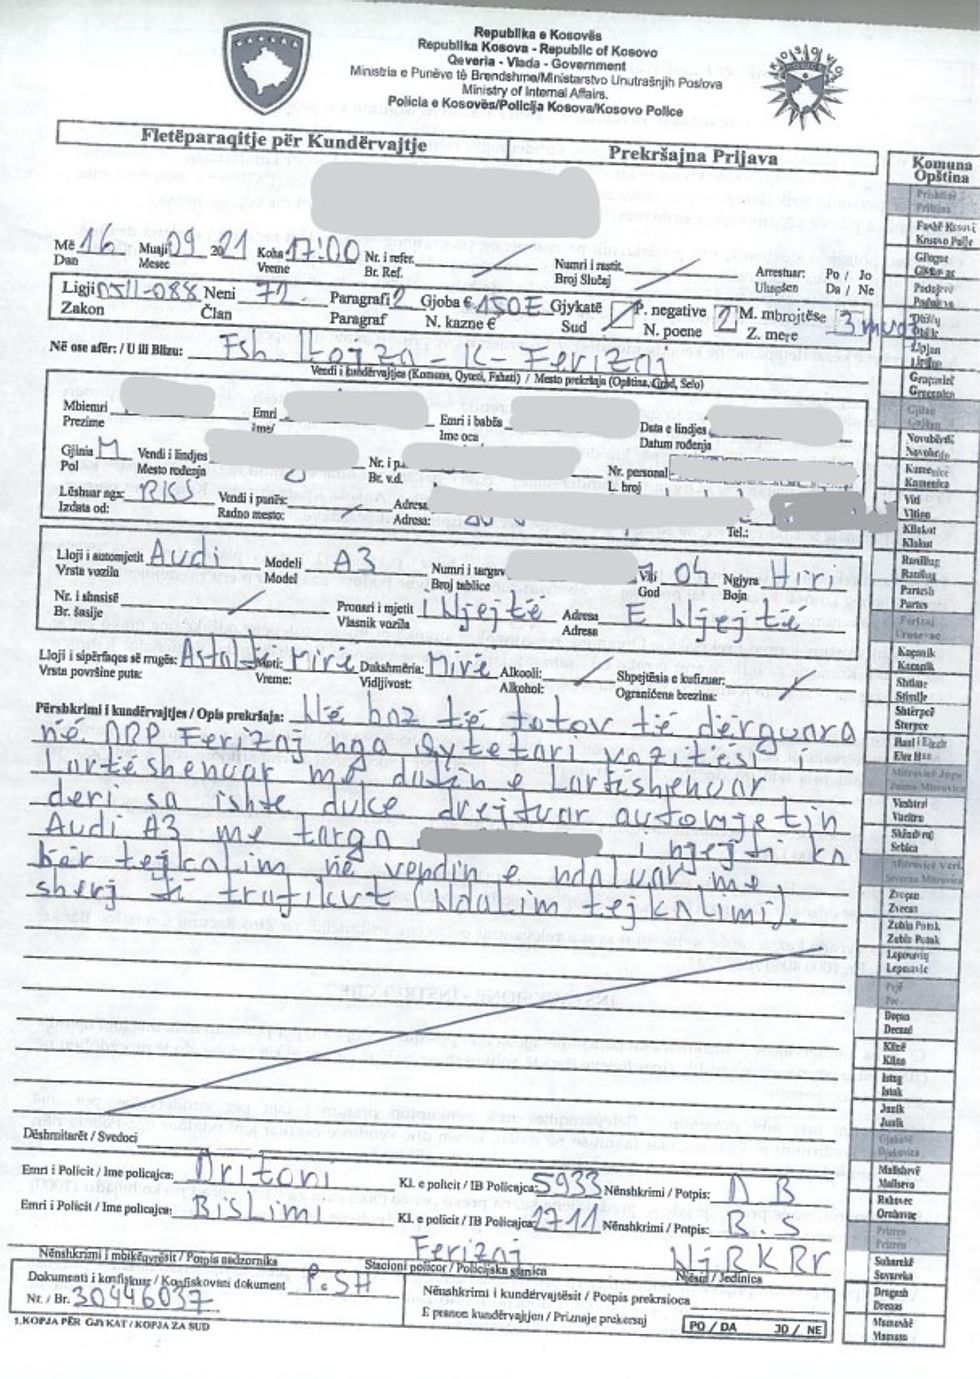 Republika e Kosovës
Republika Kosova - Republic of Kosovo
Qeveria - Vlada - Government
Ministria e Punëve të Brendshme/Ministarstvo Unutrašnjih Poslova
Ministry of Internal Affairs.
Policia e Kosovës/Policija Kosova/Kosovo Police
Fletëparaqitje për Kundërvajtje Prekršajna Prijava
Më 16 Muaji 09 2021 Koha 17:00 Nr. i refer. Numri i rastit. Arrestuar: Po / Jo
Dan Mesec Vreme Br. Ref. Broj Slučaj Uhapšen Da / Ne
Ligji 05/1-088 Neni 72 Paragrafi 2 Gjoba € 150€ Gjykatë P. negative 2 M. mbrojtëse 3 muaj
Zakon Član Paragraf N. kazne € Sud N. poene Z. mere
Në ose afër: / U ili Blizu: Fsh - K - Ferizaj
Vendi i kundërvajtjes (Komuna, Qyteti, Fshati) / Mesto prekršaja (Opština, Grad, Selo)
Mbiemri Emri Emri i babës Data e lindjes
Prezime Ime/ Ime oca Datum rođenja
Gjinia M Vendi i lindjes Nr. i p. Nr. personal
Pol Mesto rođenja Br. v.d. L. broj
Lëshuar nga: RKS Vendi i punës: Adresa
Izdata od: Radno mesto: Adresa: Tel.:
Lloji i automjetit Audi Modeli A3 Numri i targave Viti 04 Ngjyra Hiri
Vrsta vozila Model Broj tablice God Boja
Nr. i shasisë Pronari i mjetit I Njejtë Adresa E Njejtë
Br. šasije Vlasnik vozila Adresa
Lloji i sipërfaqes së rrugës: Asfalt Moti: Mirë Dukshmëria: Mirë Alkooli: Shpejtësia e kufizuar:
Vrsta površine puta: Vreme: Vidljivost: Alkohol: Ograničena brzina:
Përshkrimi i kundërvajtjes / Opis prekršaja: Në baz të fotov të dërguara
në DRP Ferizaj nga qytetari vozitësi
lartëshenuar me datën e lartëshjenuar
deri sa ishte duke drejtuar automjetin
Audi A3 me targa i njejti ka
bër tejkalim në vendin e ndaluar me
shenj të trafikut (Ndalim tejkalimi).
Dëshmitarët / Svedoci
Emri i Policit / Ime policajca: Dritoni Kl. e policit / IB Policajca: 5933 Nënshkrimi / Potpis: D B
Emri i Policit / Ime policajca: Bislimi Kl. e policit / IB Policajca: 1711 Nënshkrimi / Potpis: B.S
Ferizaj Nj.R K Rr
Nënshkrimi i mbikëqyrësit / Potpis nadzornika Stacioni policor / Policijska stanica Njësia / Jedinica
Dokumenti i konfiskuar / Konfiskovani dokument P.SH Nënshkrimi i kundërvajtësit / Potpis prekrsioca
Nr. / Br. 30446037 E pranon kundërvajtjen / Priznaje prekersaj PO / DA JO / NE
1.KOPJA PËR GJYKAT / KOPJA ZA SUD
Komuna
Opština
Prishtinë
Priština
Fushë Kosovë
Kosovo Polje
Gllogoc
Glogovac
Podujevë
Podujevo
Obiliq
Obilik
Lipjan
Lipljan
Graçanicë
Gracanica
Gjilan
Gnjilane
Novobërdë
Novobrdo
Kamenicë
Kamenica
Viti
Vitina
Kllokot
Klokot
Ranillug
Ranilug
Partesh
Partes
Ferizaj
Urosevac
Kaçanik
Kacanik
Shtime
Stimlje
Shtërpcë
Sterpce
Hani i Elezit
Elez Han
Mitrovicë Jugu
Juzna Mitrovica
Vushtrri
Vucitrn
Skënderaj
Srbica
Mitrovicë Veri.
Severna Mitrovica
Zveçan
Zvecan
Zubin Potok
Zubin Potok
Leposaviq
Leposavic
Pejë
Pec
Deçan
Decani
Klinë
Klina
Istog
Istok
Junik
Junik
Gjakovë
Djakovica
Malishevë
Malisevo
Rahovec
Orahovac
Prizren
Prizren
Suharekë
Suvareka
Dragash
Dragas
Mamushë
Mamusa